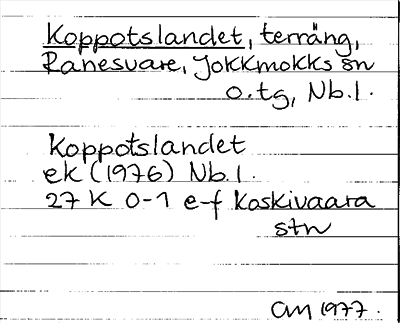 Koppotslandet, terräng,
Ranesvare, Jokkmokks sn
o. tg, Nb. l.
Koppotslandet
ek (1976) Nb. l.
27 K 0-1 e-f Koskivaara
stn
CM 1977.